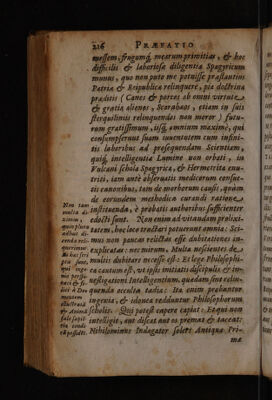 216 PRÆFATIO
messem, frugumq́; mearum primitias, & hoc
difficilis & laboriosæ diligentia Spagyricum
munus, quo non puto me potuisse præstantius
Patriæ & Reipublicæ relinquere, piæ doctrina
præditis (Canes & porcos ab omni virtute
& gratia alienos, Scarabæos, etiam in suis
sterquiliniis relinquendos non moror) futu-
rum gratissimum, iisq́; omnium maximè, qui
consumpserunt suam iuventutem cum infini-
tis laboribus ad prosequendam Scientiam,
quiq́; intelligentiæ Lumine non orbati, in
Vulcani schola Spagyrica, & Hermetica enu-
triti, iam antè observatis medicorum censu-
ris canonibus, tam de morborum causis, quàm
de eorundem methodica curandi ratione
instituenda, è probatis authoribus sufficienter
edocti sunt. Non enim ad vitandam prolixi-
tatem, hoc loco tractari potuerunt omnia: Sci-
mus non paucas relictas esse dubitationes in-
explicatas: nec mirum. Multa nescientes de
multis dubitare necesse est: Et lege Philosophi-
ca cautum est, vt ipsis initiatis discipulis & in-
vestigationi Intelligentium, quædam sint relin-
quenda occulta tadia: Ita enim probantur
ingenia, & idonea redduntur Philosophorum
scholis. Qui potest capere capiat: Et qui non
intelligit, aut discat aut os premat & taceat:
Nihilominus Indagator solers Antiquæ Pri-
mæ
Non tam
multa di-
ximus,
quin plura
adhuc di-
cenda reli-
querimus: